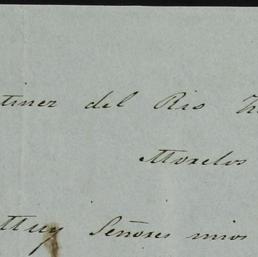 tinez del Rio
Morelos
Muy Señores mios